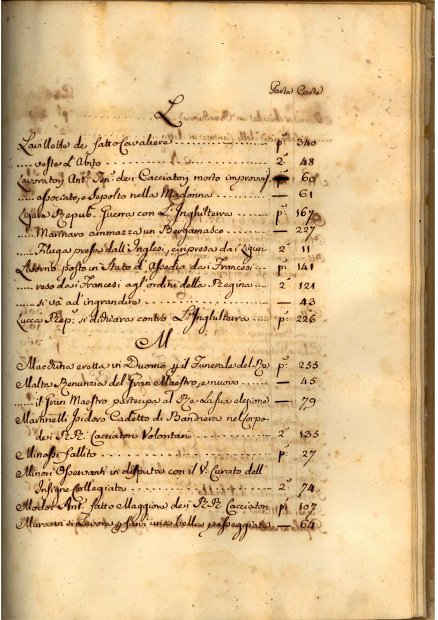 Parte Carte
L
Lanllotte de fatto Cavaliere p.ª 340
veste l'Abito 2ª 48
Lavoratori Ant.º Ten.e dei Cacciatori morto improvv. 60
associato, e Sepolto nella Madonna — 61
Ligure Repub. Guerra con L'Inghilterra p.ª 167
Marinaro ammazza un Bergamasco — 227
Filuga presa dall'Inglesi, e ripresa da i Liguri 2ª 11
Livorno posto in stato d'Assedio dai Francesi p.ª 141
reso dai Francesi agl'ordini della Regina 2 121
si và ad'ingrandire — 43
Lucca Rep.ª si dichiara contro L'Inghilterra p.ª 226
M
Macchina eretta in Duomo p il Funerale del Re p.ª 235
Malta Renunzia del Gran Maestro, e nuovo — 45
il Gran Maestro partecipa al Re la sua elezione — 79
Martinelli Isidoro Cadetto di Bandiera nel Corpo
dei RR. Cacciatori Volontari 2ª 135
Minassi fallito p.ª 27
Minori Osservanti in disputa con il V. Curato dell'
Insigne Collegiata 2ª 74
Ant.º fatto Maggiore dei RR. Cacciatori p.ª 107
Murana si Lavora p farvi una bella passeggiata — 64